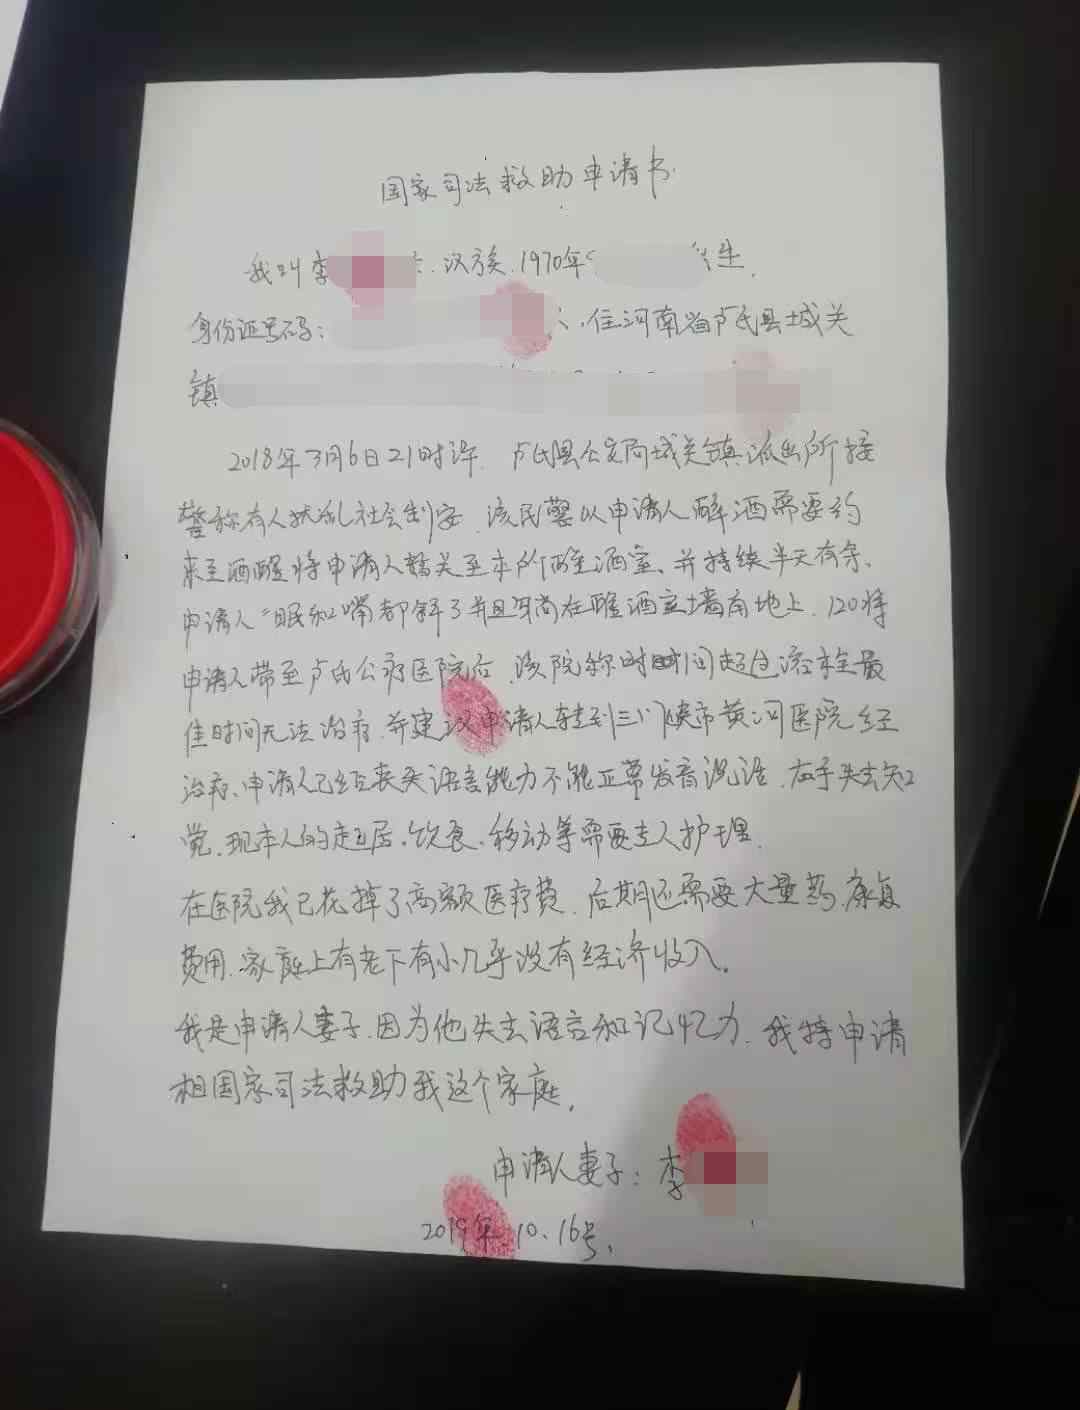 国家司法救助申请书
我叫李 汉族.1970年 生.
身份证号码: 住河南省卢氏县城关
镇
2018年3月6日21时许.卢氏县公安局城关镇派出所接
警称有人扰乱社会制安.该民警以申请人醉酒需要约
束至酒醒将申请人 关至本所醒酒室、并持续半天有余、
申请人"眼和嘴都斜了并且 尚在醒酒室墙南地上.120将
申请人带至卢氏公疗医院后.该院称时时间超过溶栓最
佳时间无法治疗.并建议申请人转到三门峡市黄河医院经
治疗、申请人已经丧失语言能力不能正常发音说话.右手失去知
觉.现本人的起居、饮食、移动等需要专人护理.
在医院我已花掉了高额医疗费.后期还需要大量药.康复
费用.家庭上有老下有小几乎没有经济收入.
我是申请人妻子.因为他失去语言和记忆力.我特申请
相国家司法救助我这个家庭.
申请人妻子:李
2019年.10.16号.